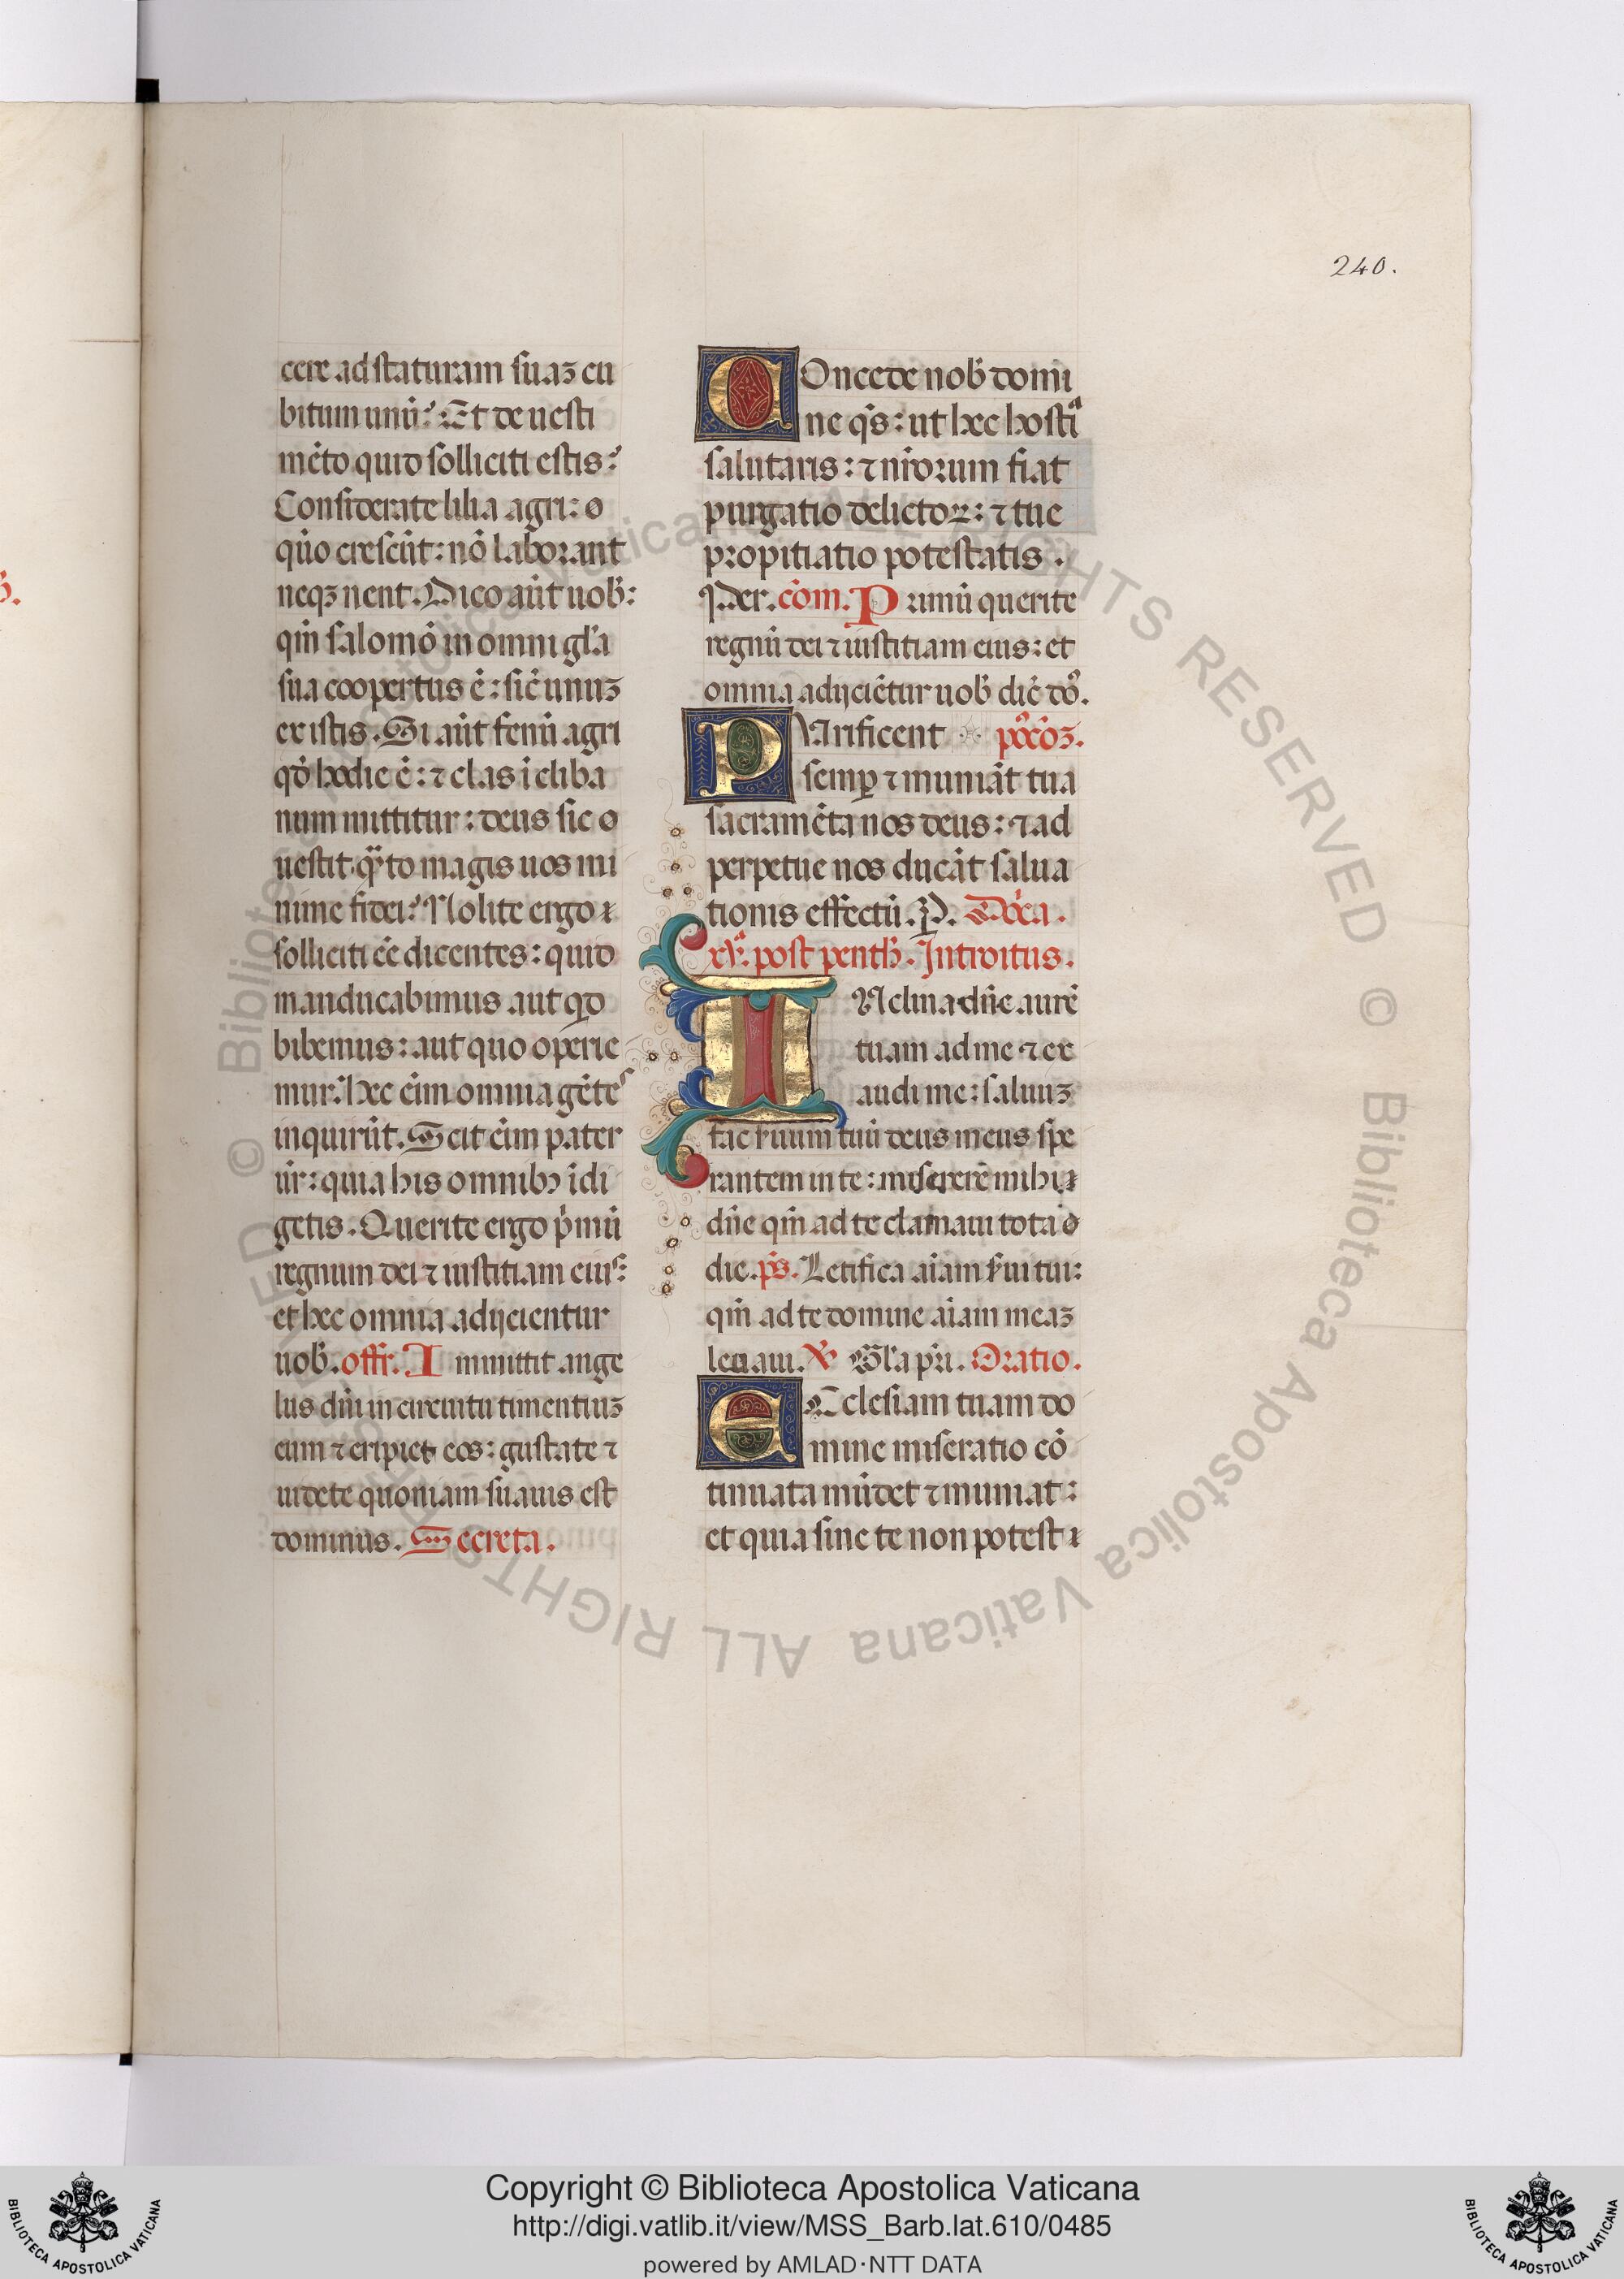 240.
cere ad staturam suaꝫ cu
bitum unũ? Et de uesti
mẽto quid solliciti estis?
Considerate lilia agri: o
quo crescũt: nõ laborant
neqꝫ nent. Dico aũt uob̃:
qm̃ salomõ in omni gl̃a
sua coopertus ẽ: sic̃ unuꝫ
ex istis. Si aũt fenũ agri
qđ hodie ẽ: ⁊ cras ĩ cliba
num mittitur: deus sic o
uestit q̃to magis uos mi
nime fidei? Nolite ergo
solliciti eẽ dicentes: quid
manducabimus aut qd
bibemus: aut quo operie
mur? hec eim̃ omnia gẽtes
inquirũt. Scit eim̃ pater
ur̃: quia his omnibꝫ ĩdi
getis. Querite ergo p̃mũ
regnum dei ⁊ iustitiam eius:
et hec omnia adijcientur
uob̃. offr̃. I mmittit ange
lus dñi in circuitu timentiuꝫ
eum ⁊ eripiet eos: gustate ⁊
uidete quoniam suauis est
dominus. Secreta.
C Oncede nob̃ domi
ne q̃s: ut hec hostia
salutaris: ⁊ nr̃orum fiat
purgatio delictoꝝ: ⁊ tue
propitiatio potestatis.
Per. cõm. P rimũ querite
regnũ dei ⁊ iustitiam eius: et
omnia adijciẽtur uob̃ dic̃ dõ.
P Urificent põcõꝫ.
semꝑ ⁊ muniãt tua
sacramẽta nos deus: ⁊ ad
perpetue nos ducãt salua
tionis effectũ. P. Dõca.
xv. post penth̃. Introitus.
I Nclina dñe aurẽ
tuam ad me ⁊ ex
audi me: saluuꝫ
fac s̃uum tuũ deus meus spe
rantem in te: miserere mihi
dñe qm̃ ad te clamaui tota
die. p̃s. Letifica aĩam s̃ui tui:
qm̃ ad te domine aĩam meaꝫ
leuaui. ℣ Gl̃a pr̃i. Oratio.
E Cclesiam tuam do
mine miseratio cõ
tinuata mũdet ⁊ muniat:
et quia sine te non potest
© Biblioteca Apostolica Vaticana ALL RIGHTS RESERVED © Biblioteca Apostolica Vaticana ALL RIGHTS RESERVED
Copyright © Biblioteca Apostolica Vaticana
http://digi.vatlib.it/view/MSS_Barb.lat.610/0485
powered by AMLAD·NTT DATA
BIBLIOTECA APOSTOLICA VATICANA
BIBLIOTECA APOSTOLICA VATICANA